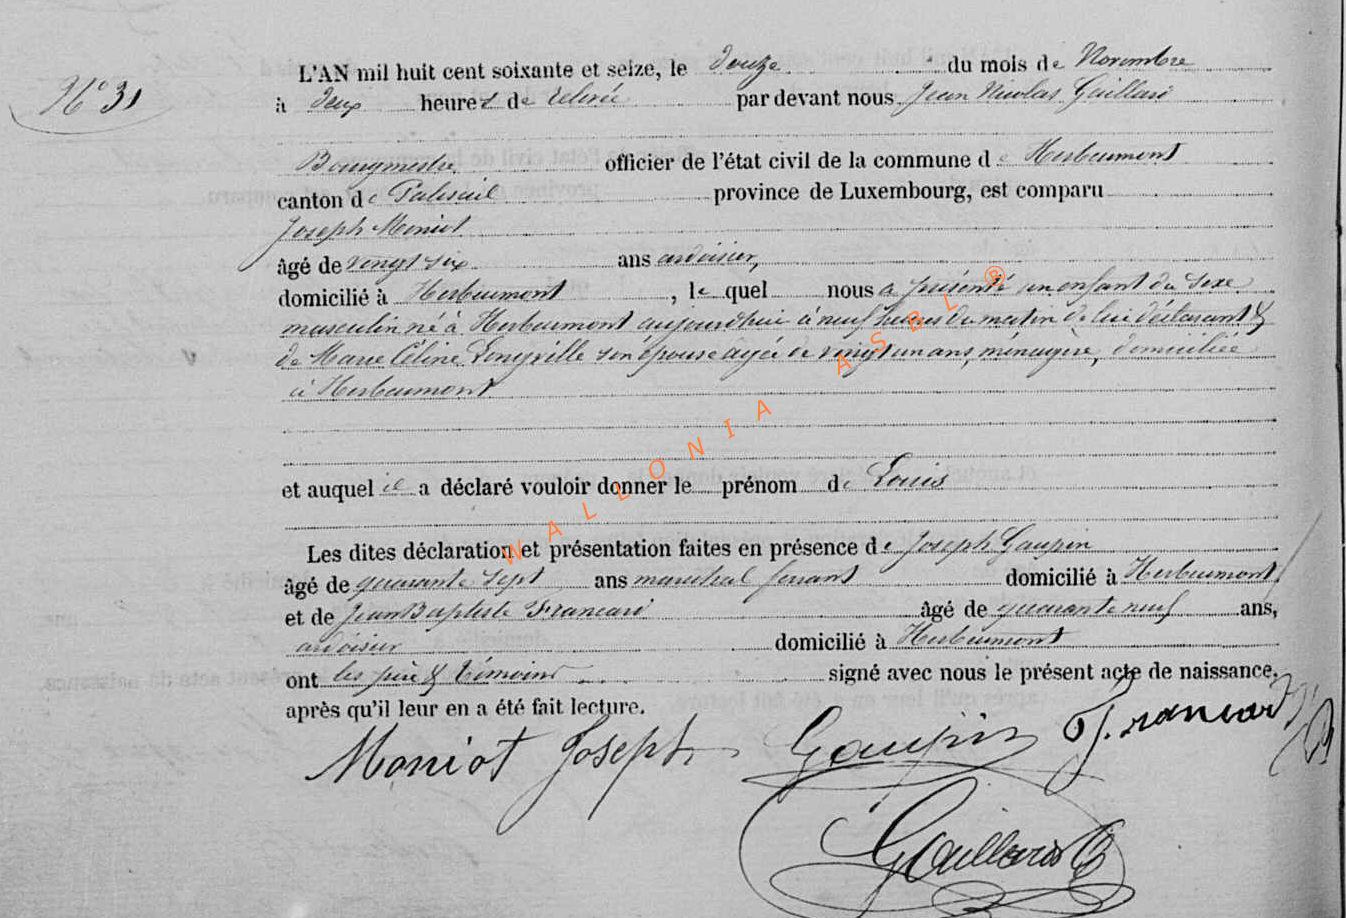 N° 31
L'AN mil huit cent soixante et seize, le douze du mois de Novembre
à deux heures de relevée par devant nous Jean Nicolas Gaillard
Bourgmestre officier de l'état civil de la commune de Herbeumont
canton de Paliseul province de Luxembourg, est comparu
Joseph Moniot
âgé de vingt six ans ardoisier,
domicilié à Herbeumont, le quel nous a présenté un enfant du sexe
masculin né à Herbeumont aujourd'hui à neuf heures du matin de lui déclarant &
de Marie Céline son épouse agée de vingt un ans, ménagère, domiciliée
à Herbeumont
et auquel il a déclaré vouloir donner le prénom de Louis
Les dites déclaration et présentation faites en présence de Joseph Gaupin
âgé de quarante sept ans maréchal ferrant domicilié à Herbeumont
et de Jean Baptiste Francard âgé de quarante neuf ans,
ardoisier domicilié à Herbeumont
ont les père & témoins signé avec nous le présent acte de naissance,
après qu'il leur en a été fait lecture.
Moniot Joseph Gaupin Francard J B
Gaillard
WALLONIA ASBL ®